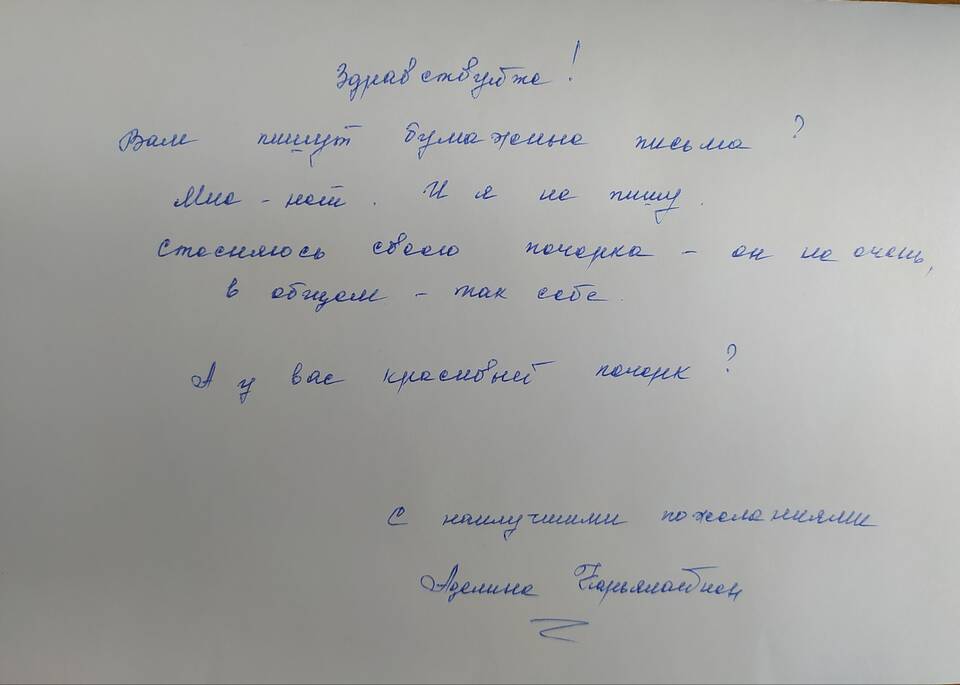 Здравствуйте!
Вам пишут бумажные письма?
Мне - нет. И я не пишу.
Стесняюсь своего почерка - он не очень,
в общем - так себе.
А у вас красивый почерк?
С наилучшими пожеланиями
Аделина